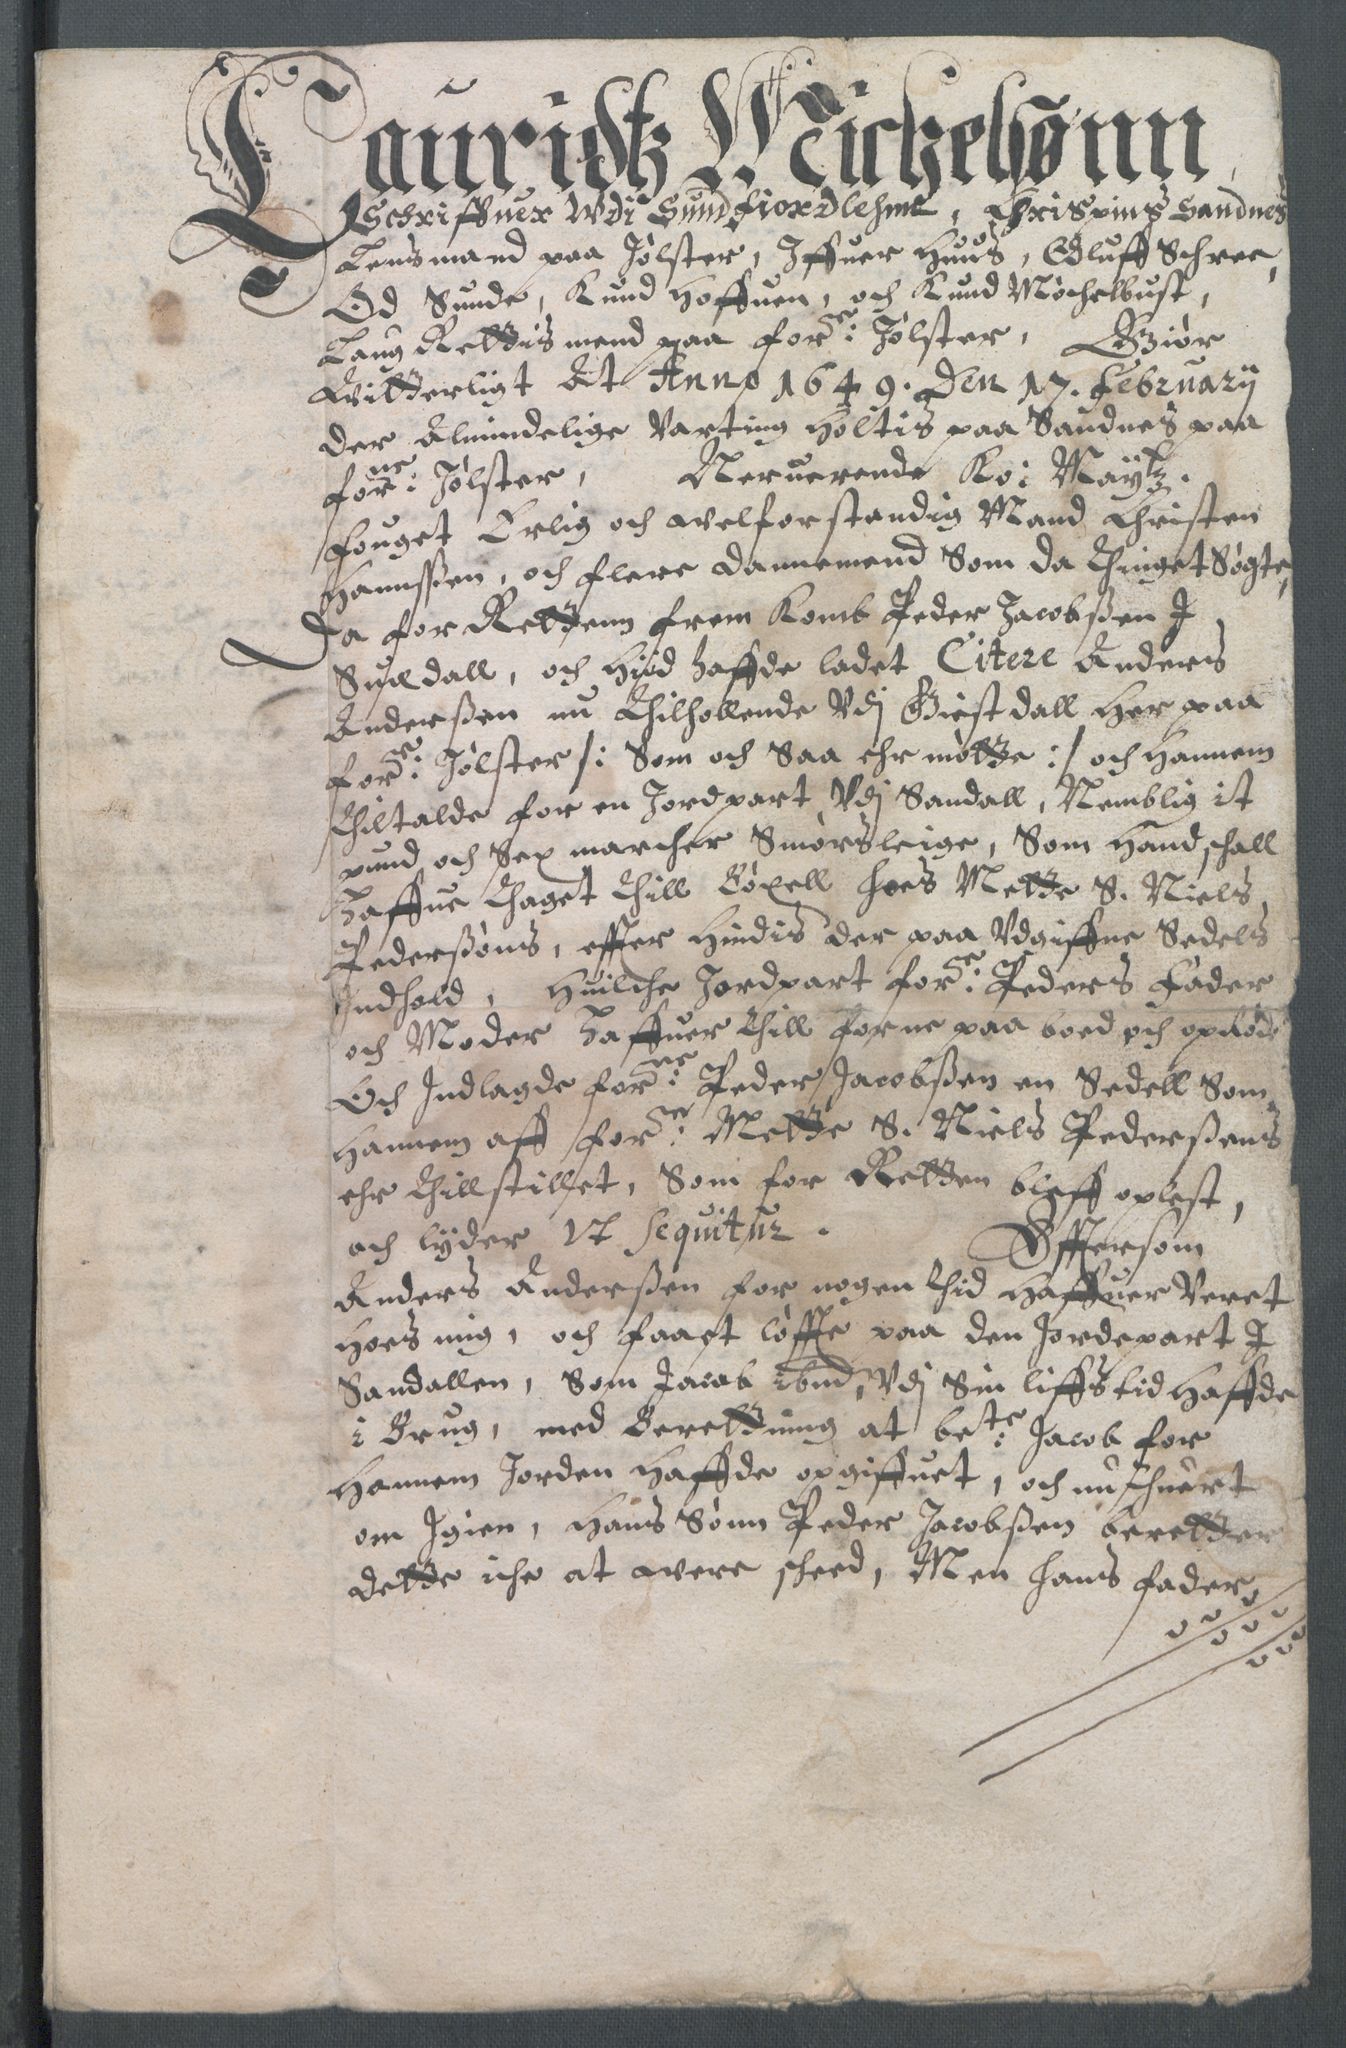 Lauridtz Mickelsønn
Schriffuer Vdi Sundfiordlehne, Chrispins Sandnes
Lensmand paa Jølster, Iffuer Huus, Oluff Schree,
Od Sunde, Knud Hoffuen, och Knud Møchelbust,
Laug Rettis mend paa forne: Jølster, Giør
Vitterligt At Anno 1649. den 17. Februarij
der Almindelige Varting holtis paa Sandnes paa
forne: Jølster, Neruerende Ko: Maytz.
fouget Erlig och welforstandig Mand Christen
Hannssen, och flere dannemend Som da thinget Søgte,
Da for Rettenn frem komb Peder Jacobssen I
Sualdall, och hid haffde ladet Citere Anders
Anderssen nu thilhollende Vdj Giestdall her paa
forne: Jølster /: Som och Saa ehr møtte :/ och hannem
thiltalde for en Jordpart Vdj Sandall, Nemblig it
pund och Sex marcher Smørsleige, Som hand schall
haffue thaget thill bøxell hoes Mette S. Niels
Pederssøns, effter hindis der paa Vdgiffne Sedels
Indhold, huilche Jordpart forne: Peders fader
och Moder haffuer thill forne paa boed och opkød
Och Indlagde forne: Peder Jacobssen en Sedell Som
hannem aff forne: Mette S. Niels Pederssens
ehr thillstillet, Som for Retten bleff oplest,
och lyder Vt Sequitur. Effterson
Anders Anderssen for nogen thid haffuer Veret
hoes mig, och faaet løffte paa den Jordepart I
Sandallen, Som Jacob ibnd, Vdj Sin liffstid haffde
i Brug, med Berettning at bete: Jacob for
hannem Jorden haffde opgiffuet, och nu
om Igien, hans Sønn Peder Jacobssen beretter
dette iche at were scheed, Men hans fader